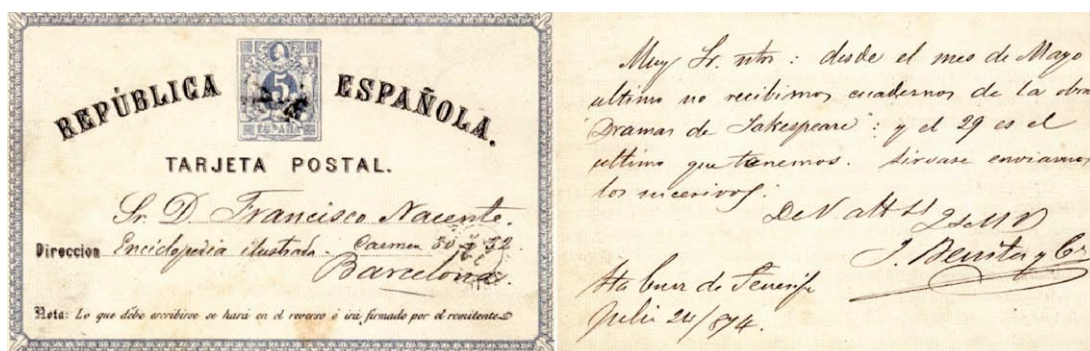 REPÚBLICA ESPAÑOLA.
5
ESPAÑA
TARJETA POSTAL.
Sr. D. Francisco Nacente.
Direccion Enciclopedia ilustrada. Carmen 30
Barcelona.
Nota: Lo que débe escribirse se hará en el reverso é irá firmado por el remitente
Muy Sr. ntro : desde el mes de Mayo
ultimo no recibimos cuadernos de la obra
"Dramas de Sakespeare" : y el 29 es el
ultimo que tenemos. Sirvase enviarnos
los sucesivos
J. Benitez y C.
Sta Cruz de Tenerife
Julio 24/874.